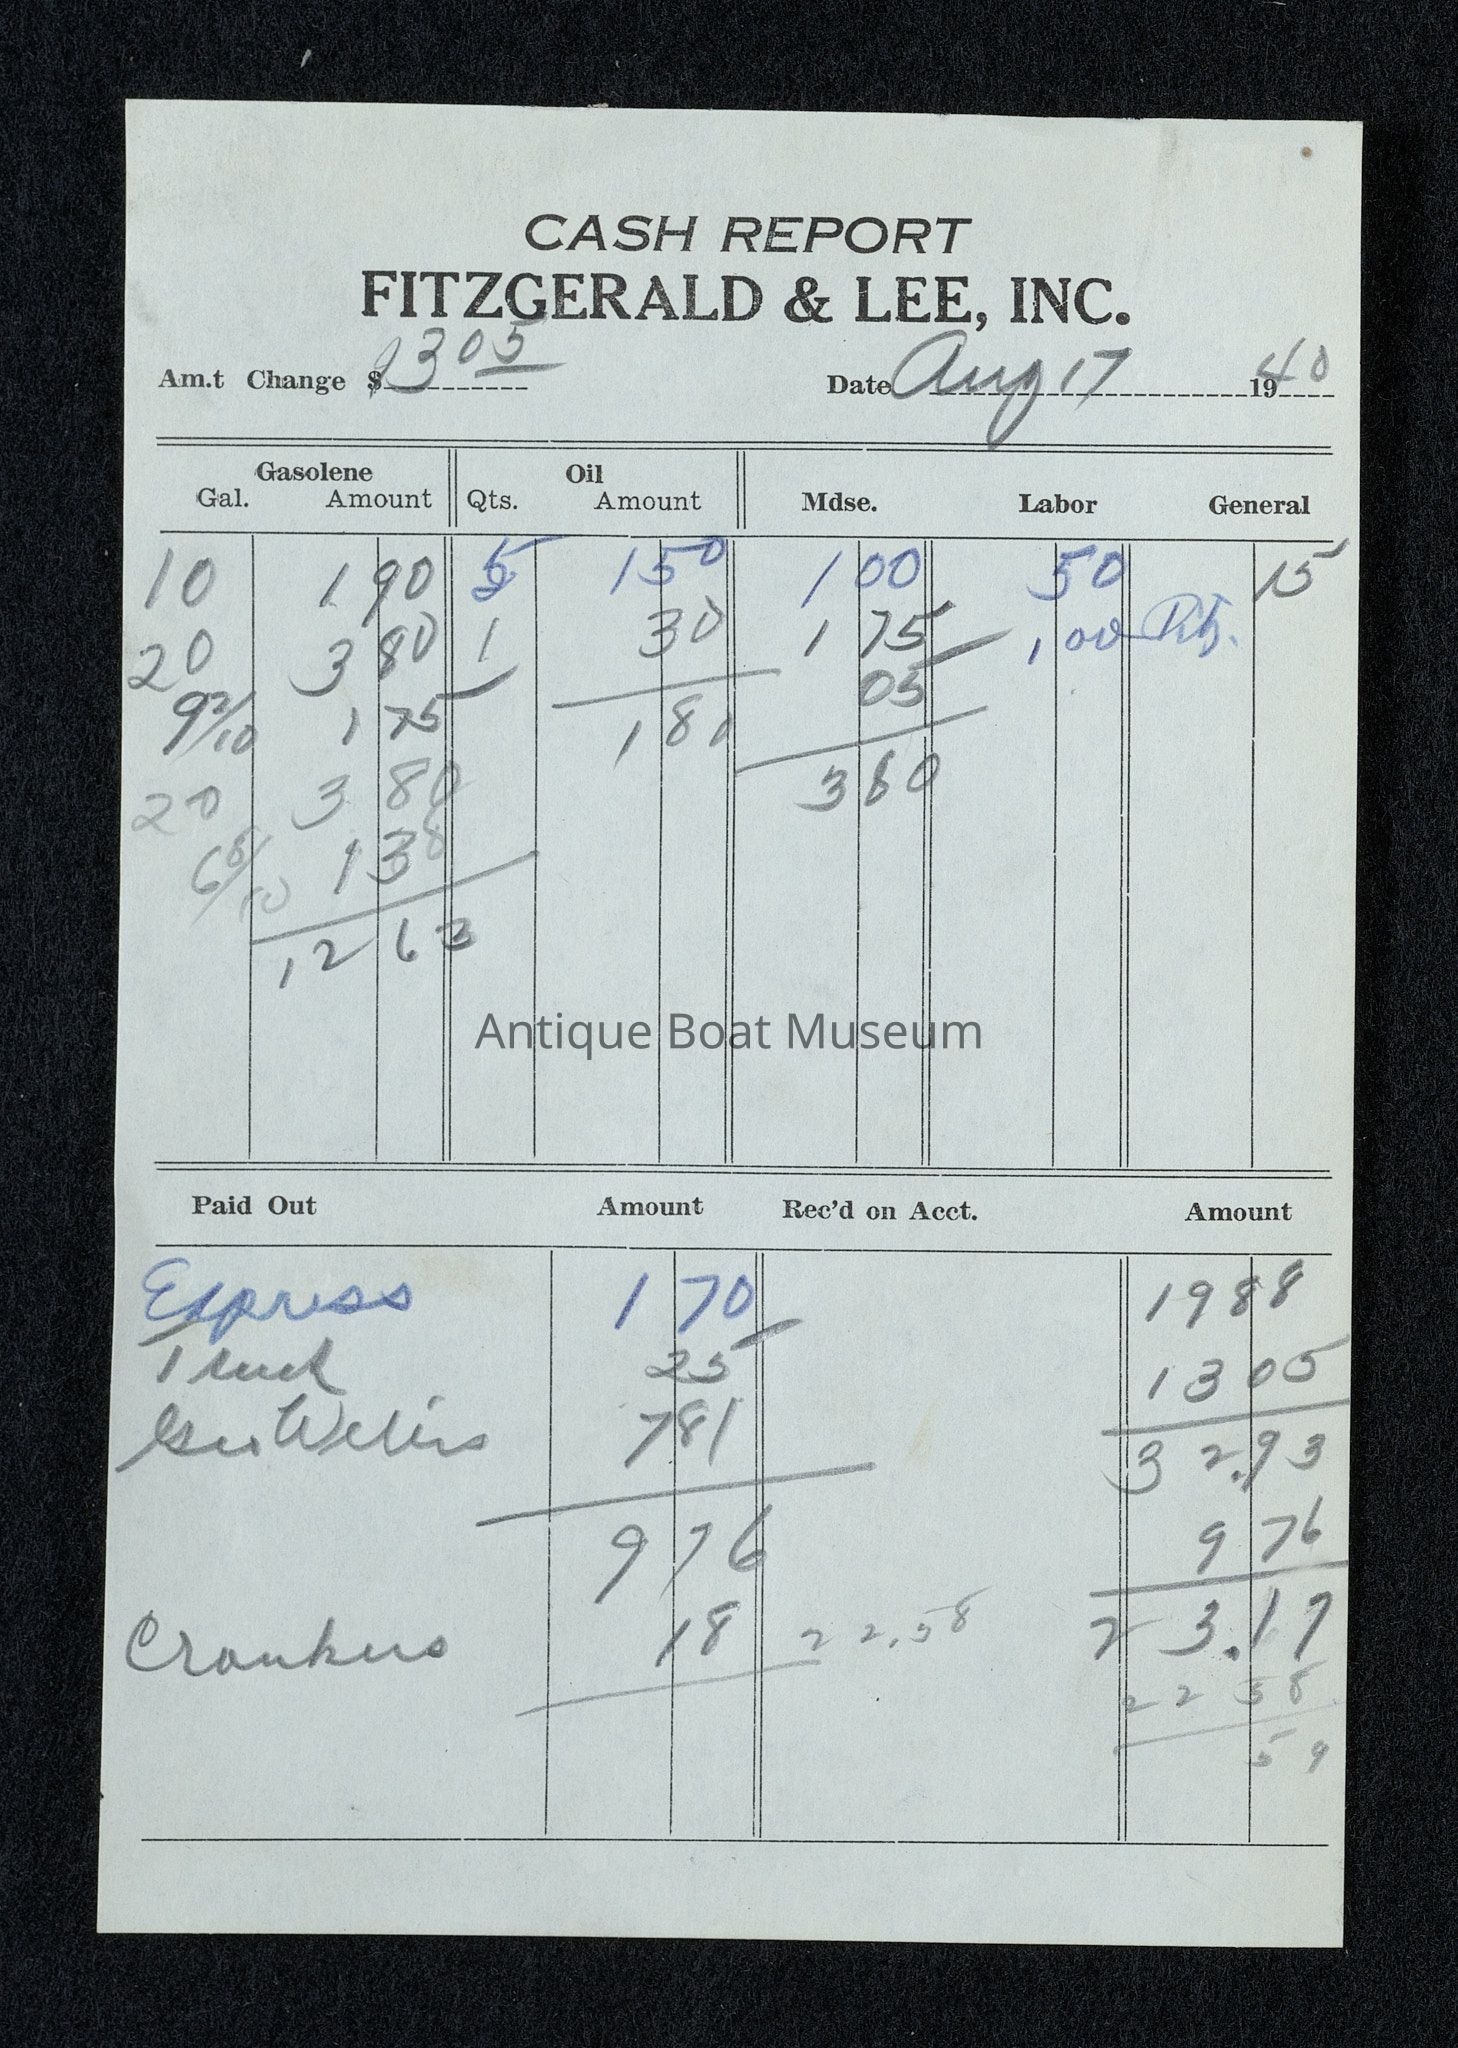 CASH REPORT
FITZGERALD & LEE, INC.
Am.t Change $ 13 05 Date Aug 17 1940
Gasolene Oil
Gal. Amount Qts. Amount Mdse. Labor General
10 1 90 5 1 50 1 00 50 15
20 3 80 1 30 1 75 1 00
9 2/10 1 75 1 81 05
20 3 80 3 80
6 8/10 1 38
12 63
Antique Boat Museum
Paid Out Amount Rec'd on Acct. Amount
Express 1 70 19 88
Truck 25 13 05
7 81 32.93
9 76 9 76
18 22.58 23.17
22 58
59